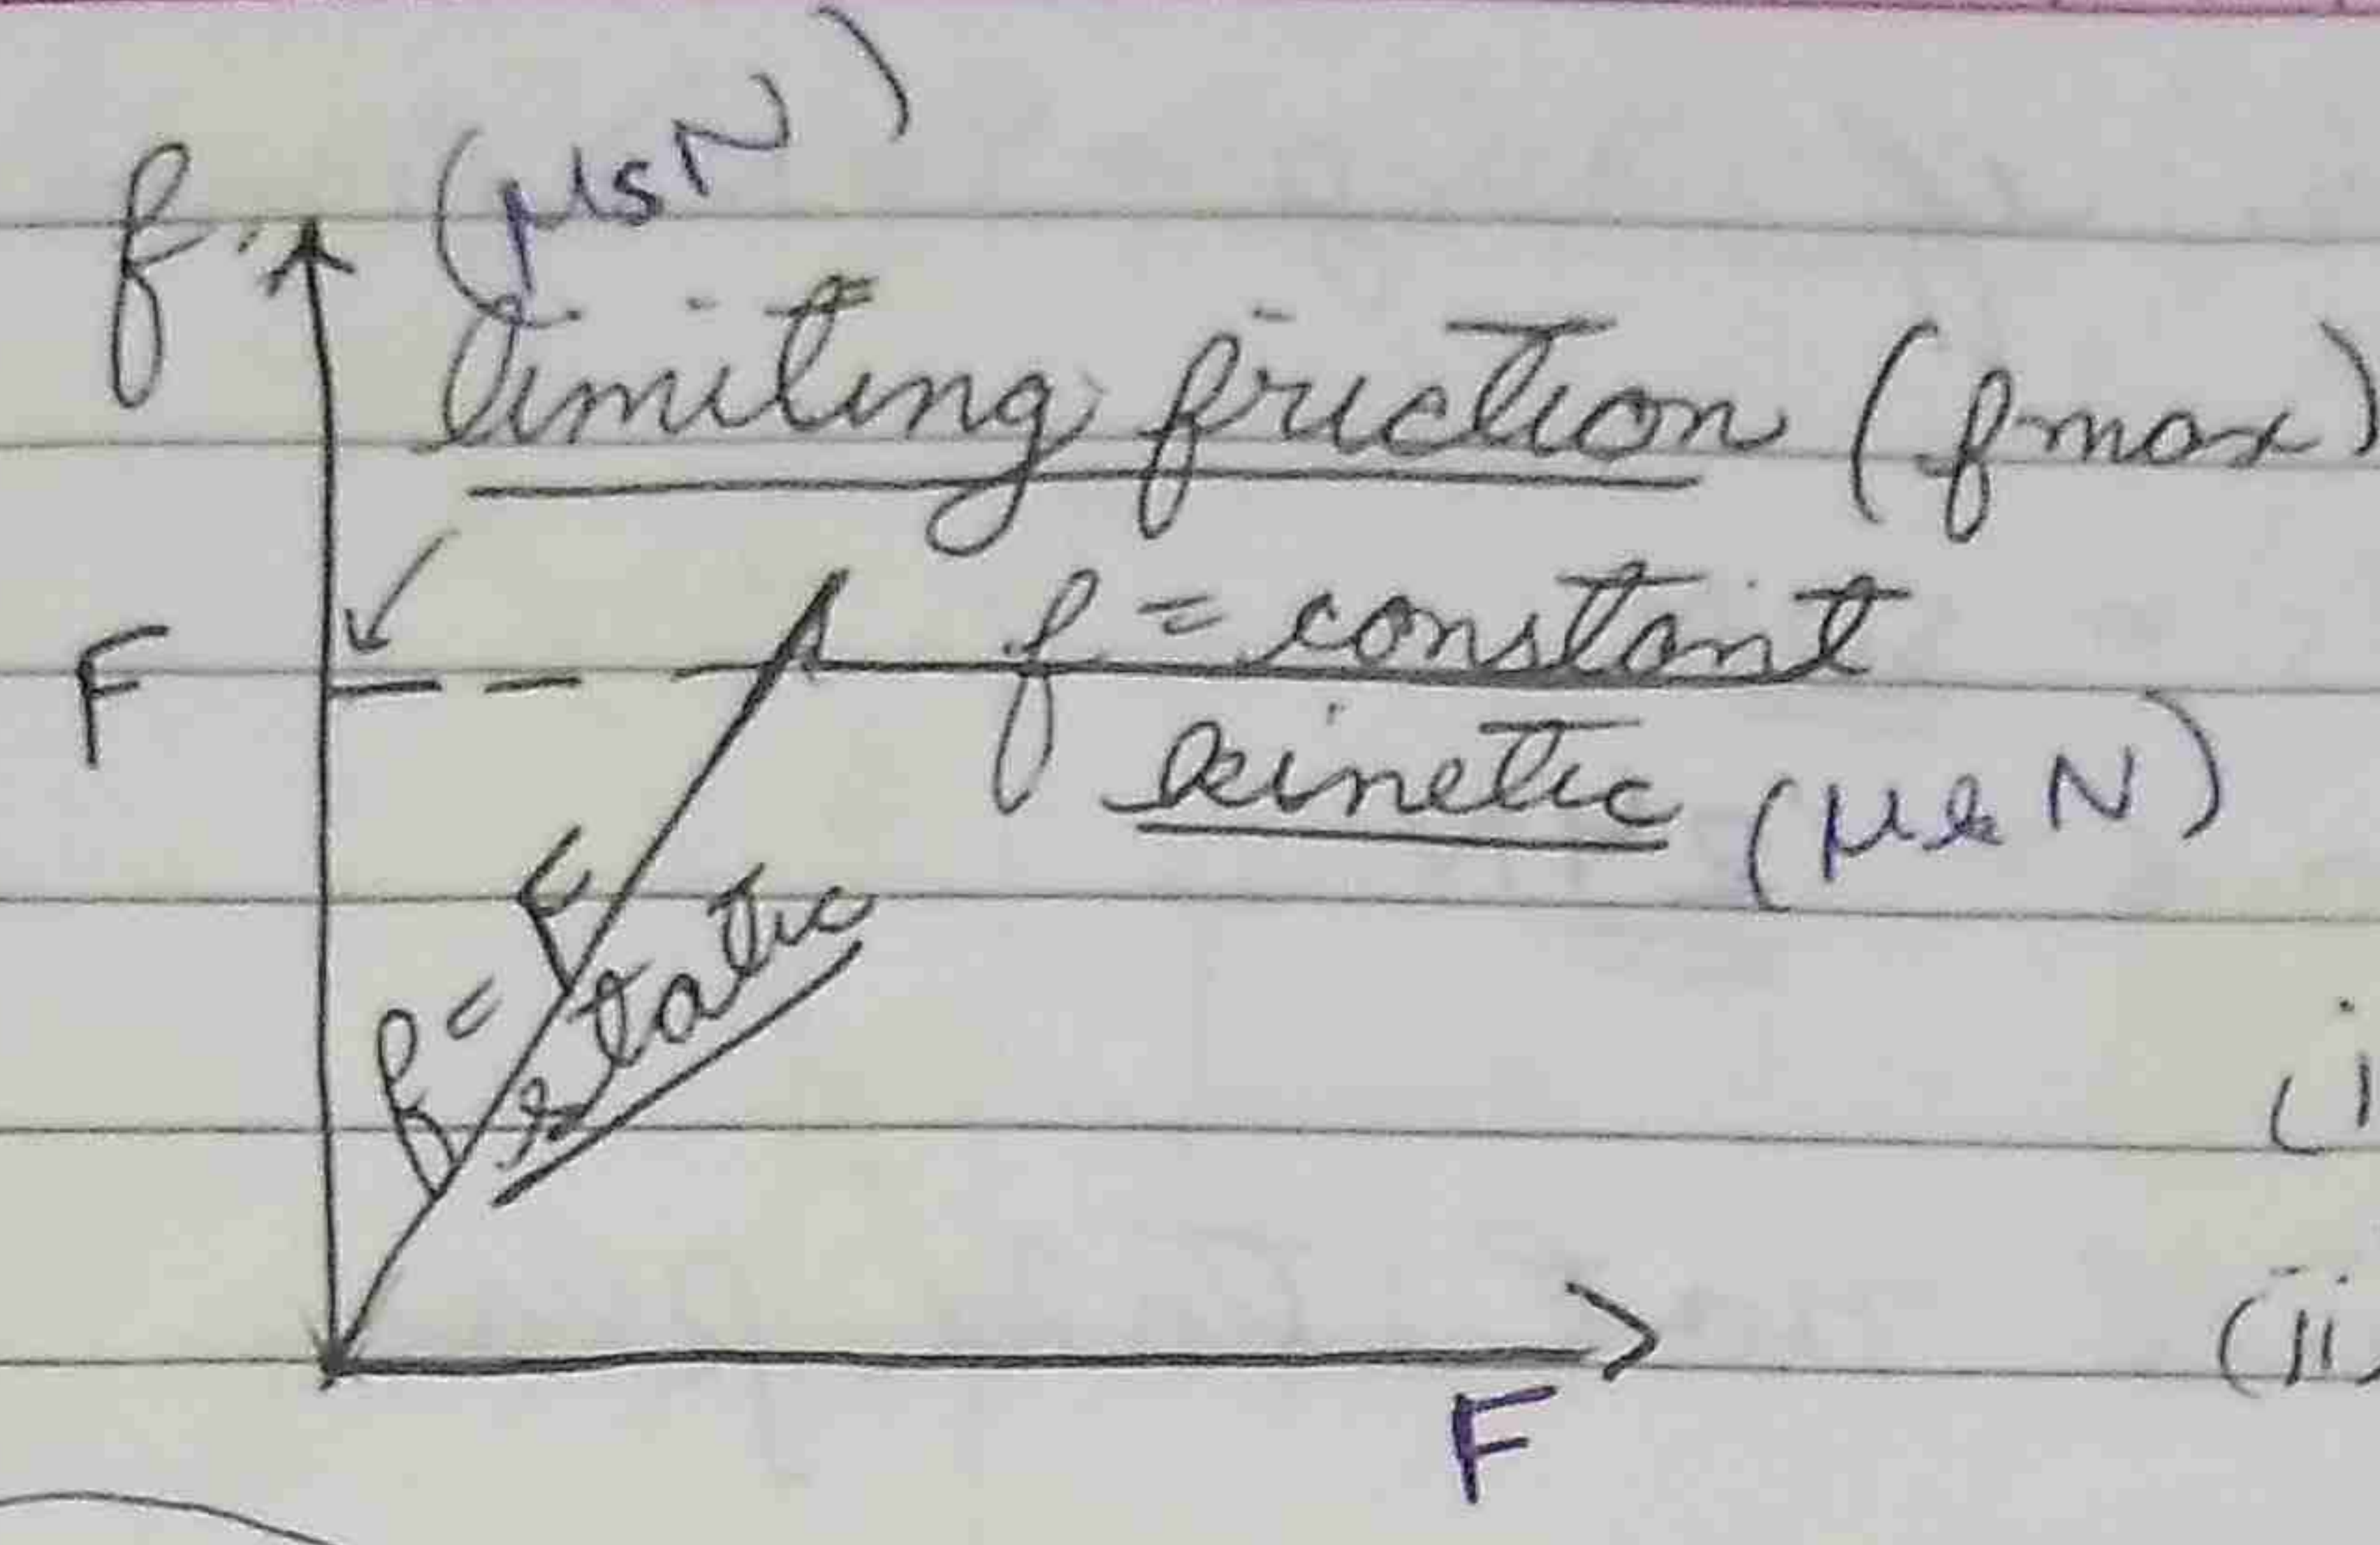 f (μsN)
limiting friction (fmax)
F
f = constant
kinetic (μkN)
f = F
static
(i
(ii)
F